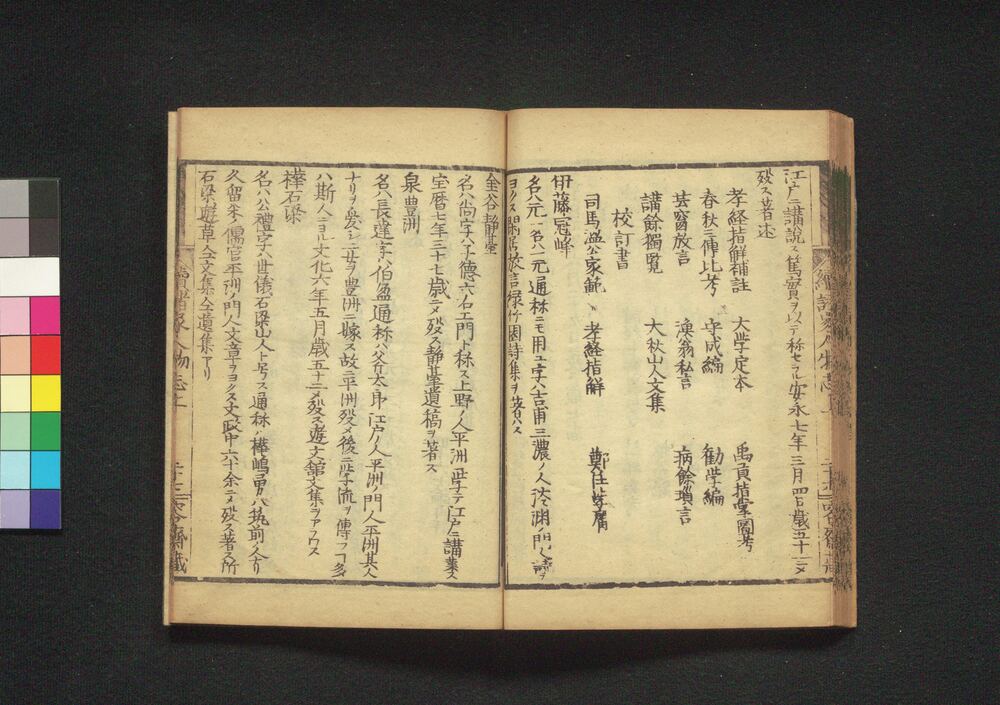 江戸ニ講説ス篤實ヲ以テ称セラル安永七年三月四日歳五十二ニメ
殁ス著述
孝経指解補註 大学定本 禹貢指掌圖考
春秋三傳比考 守成編 勧学編
甚窗放言 漁翁私言 病餘瑣言
講餘獨覧 大秋山人文集
校訂書
司馬温公家範 孝経指解
伊藤冠峰
名ハ元一名ハ一元通称ニモ用ユ字ハ吉甫三濃ノ人淡渊ノ門人詩ヲ
ヨクス閑居放言緑竹園詩集ヲ著ハス
金谷静臺
名ハ尚字ハ子德六右エ門ト称ス上野ノ人平洲ニ学テ江戸ニ講業ス
宝暦七年三十七歳ニメ殁ス静臺遺稿ヲ著ス
泉豊洲
名ハ長達字ハ伯盈通称ハ斧太郎江戸人平洲ノ門人平洲其人
ナリヲ愛シ二女ヲ豊洲ニ嫁ス故ニ平洲殁メ後ニ学流ヲ傳フコ多
ハ斯人ニヨル文化六年五月歳五十二メ殁ス遊文舘文集ヲアラワス
樺石梁
名ハ公禮字ハ世儀石梁山人ト号ス通称ハ樺嶋勇八筑前ノ人ナリ
久留米ノ儒官平洲ノ門人文章ヲヨクス文政中六十余ニメ殁ス著ス所
石梁遊草仝文集仝遺集アリ
續諸家人物志上